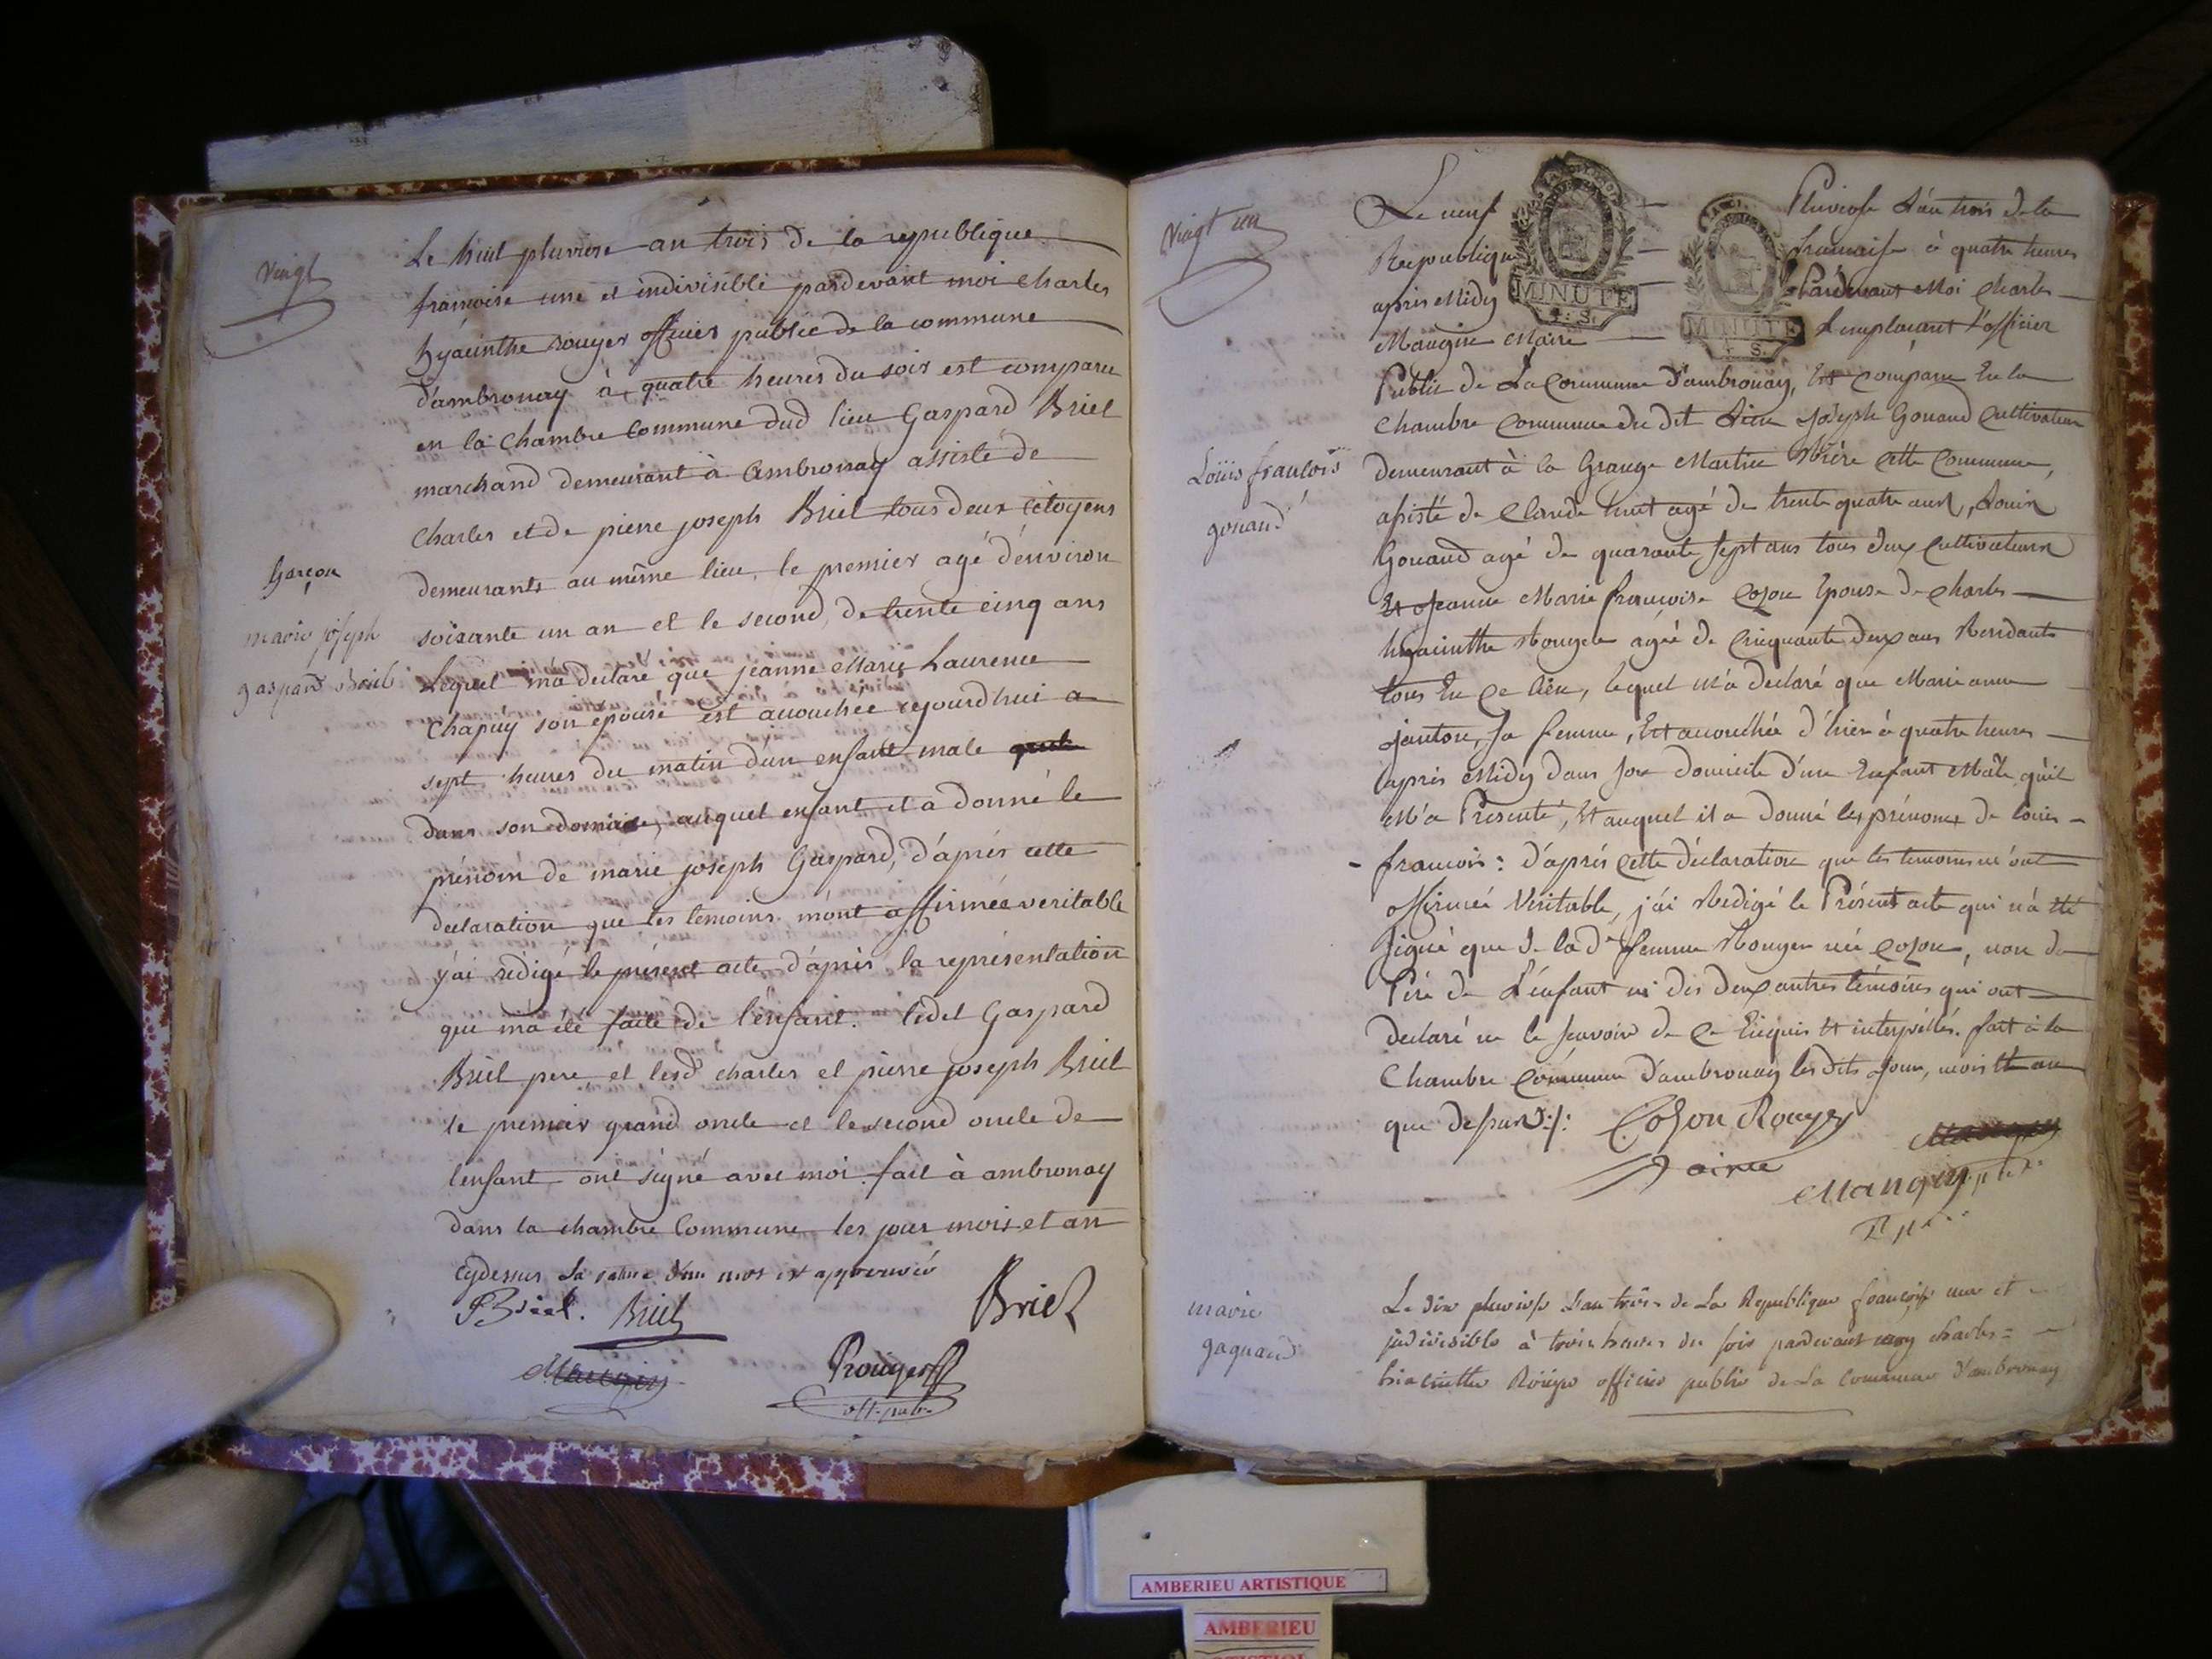 Vingt
Le huit pluviose an trois de la republique
francoise une et indivisible pardevant moi charles
hyacinthe rouyer officier public de la commune
d'ambronay à quatre heures du soir est comparu
en la chambre commune dud lieu Gaspard Briel
marchand demeurant à Ambronay assisté de
Charles et de pierre joseph Briel tous deux citoyens
demeurants au même lieu, le premier agé d'environ
soixante un an et le second, de trente cinq ans
Lequel m'a declaré que jeanne Marie Laurence
Chapuy son epouse est accouchée cejourd'hui a
sept heures du matin d'un enfant male
dans son domicile, auquel enfant il a donné le
prénom de marie joseph Gaspard, d'aprés cette
declaration que les temoins m'ont affirmée veritable
j'ai redigé le présent acte d'apris la représentation
que m'a été faite de l'enfant. ledit Gaspard
Briel pere et lesd charles et pierre joseph Briel
le premier grand oncle et le second oncle de
l'enfant ont signé avec moi. fait à ambronay
dans la chambre Commune les jour mois et an
Cydessus La rature d'un mot est approuvée
Garçon
marie joseph
gaspard Briel
PBriel. Briel Briel
Maugin Rouyer
off. pub.
Vingt un
Le neuf Pluviose L'an trois de la
Republique francaise à quatre heures
après Midy Pardevant Moi Charles
Maugin Maire Remplacant L'officier
MINUTE
4. S.
MINUTE
4. S.
Public de La Commune d'ambronay, Est comparu En la
Chambre Commune du dit Lieu Joseph Gouand Cultivateur
Demeurant à la Grange Martin Rière cette Commune,
assisté de Claude hut agé de trente quatre ans, Louis
Gouand agé de quarante sept ans tous deux Cultivateurs
Et Jeanne Marie francoise Cozon Epouse de Charles
hyacinthe Rouyer agée de Cinquante deux ans Residants
tous En ce Lieu, lequel m'a declaré que Marie anne
Janton, sa femme, Est accouchée d'hier à quatre heures
après Midy dans son domicile d'un Enfant Mâle qu'il
M'a Présenté, Et auquel il a Donné les prénoms de Louis
francois: d'aprés cette déclaration que les temoins m'ont
affirmée Veritable, j'ai Redigé le Présent acte qui n'a été
signé que de la de femme Rouyer née Cozon, non du
Pére de L'enfant ni des deux autres témoins qui ont
declaré ne le scavoir de ce Enquis Et interpellés. fait à la
Chambre Commune d'ambronay les dits Jour, mois Et an
que dessus ./.
Louis francois
gouand
Cozon Rouyer
Maugin
Maugin
marie
gagnand
Le dix pluviose L'an trois de La Republique françoise une et
indivisible à trois heures du soir pardevant moy charles
hiacinthe Roüyer officier public de La commune d'ambronay
AMBERIEU ARTISTIQUE
AMBERIEU